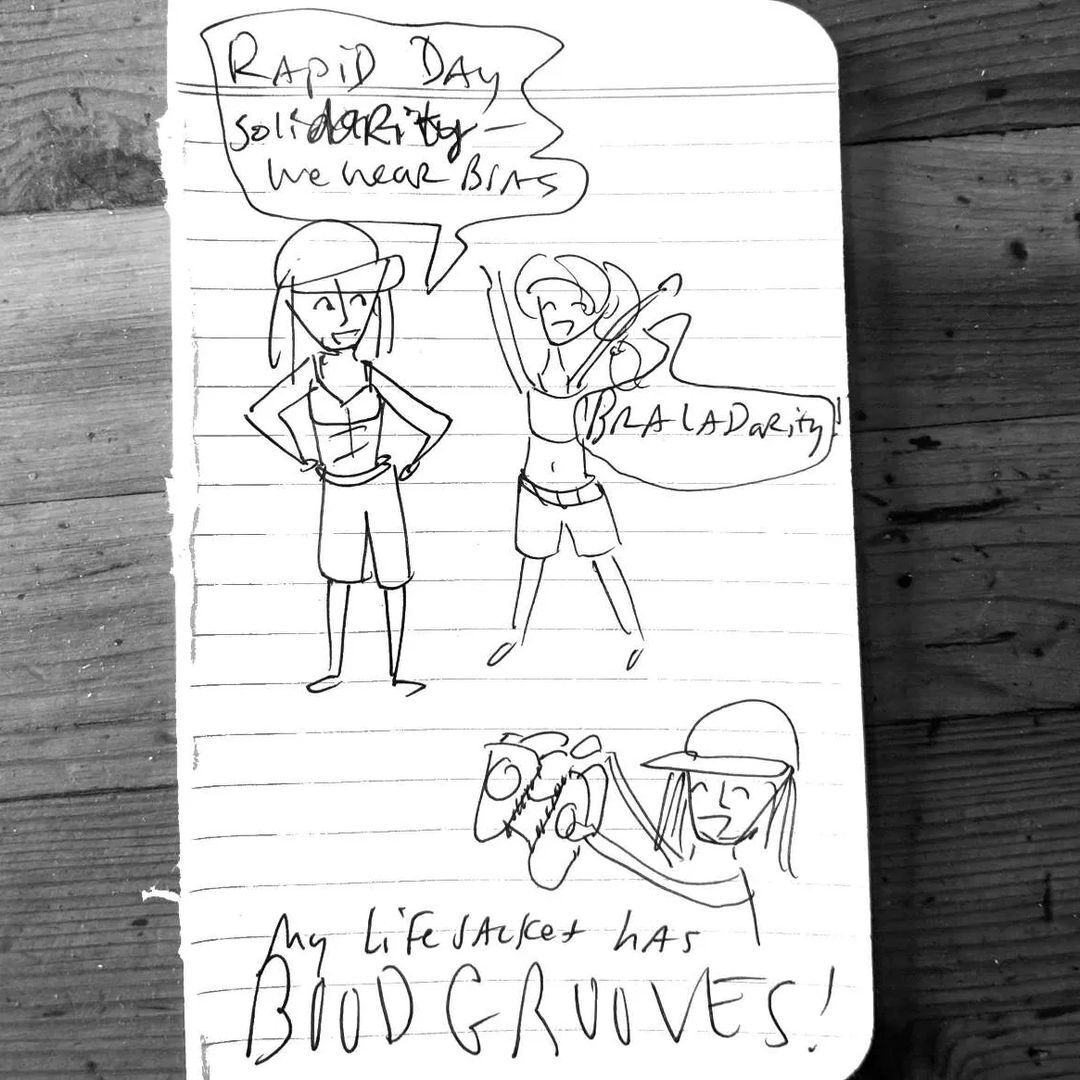 RApiD DAy
SoliDARity —
we wear BrAs
BRALADaRity!
My LiFeJAcket hAs
BOOD GROOVES!